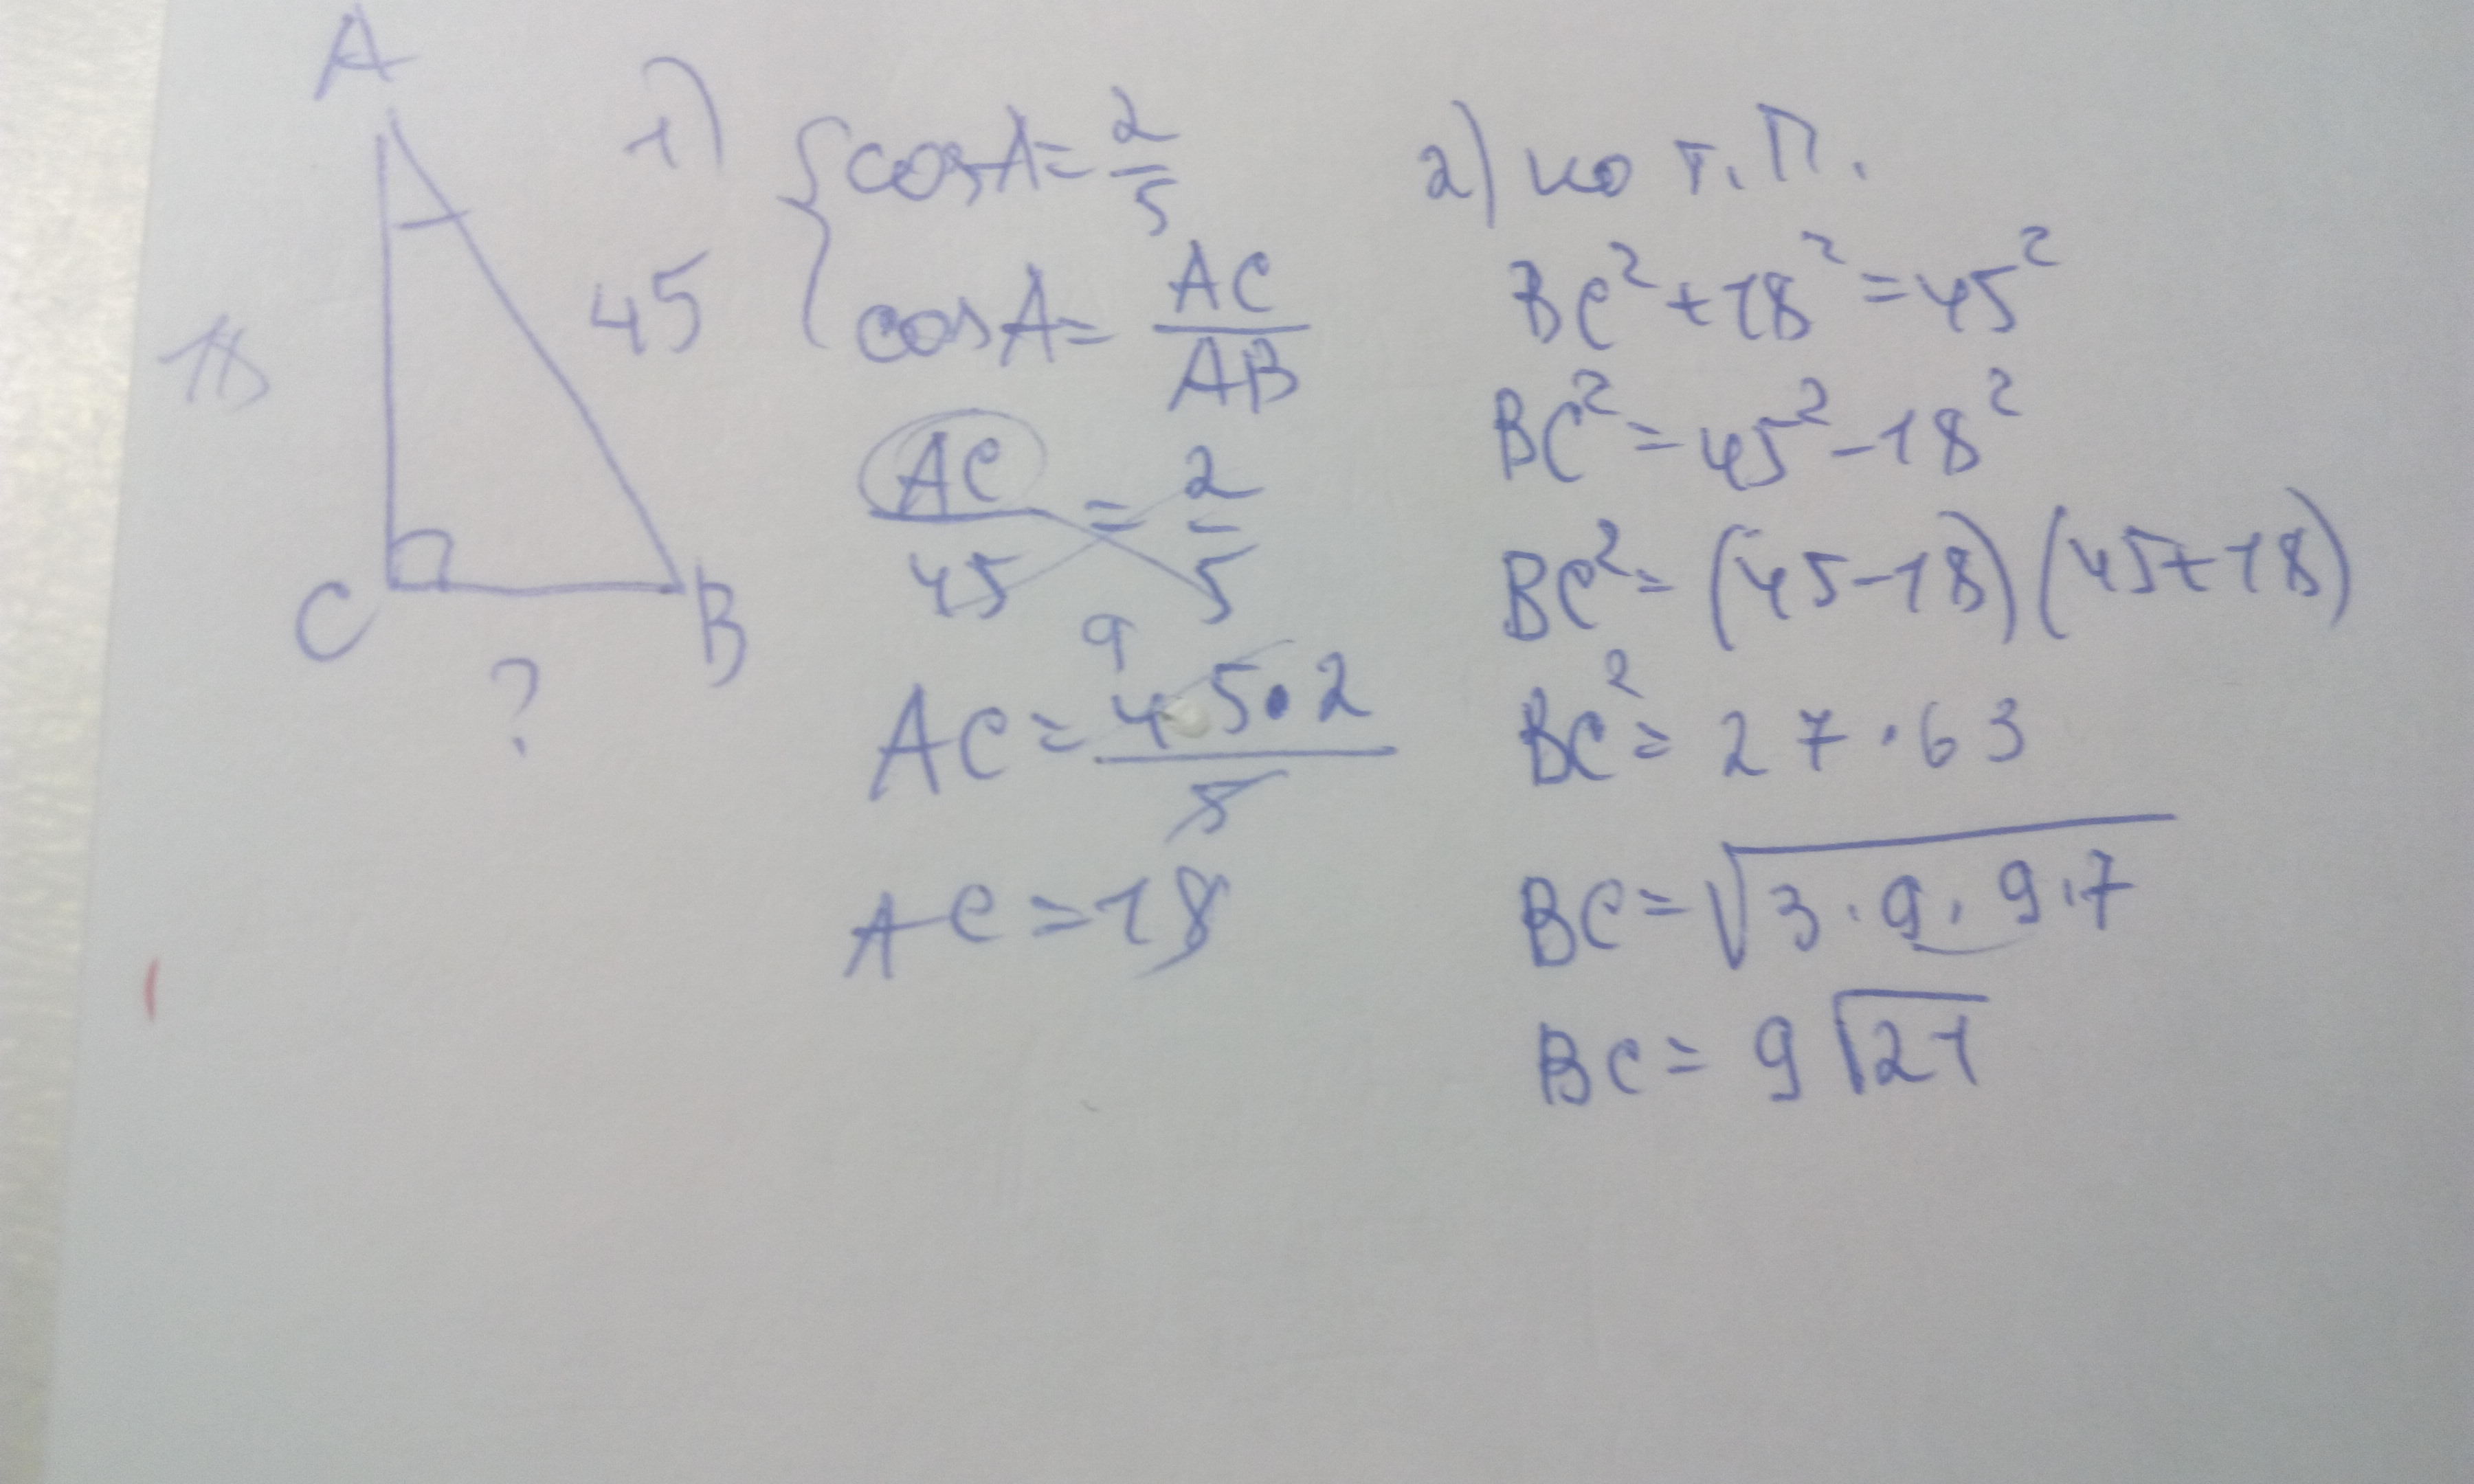 A
18
45
C
B
?
1) { cos A = 2/5
cos A = AC/AB
AC/45 = 2/5
9
AC = 45·2/5
AC = 18
2) по т. П.
BC² + 18² = 45²
BC² = 45² - 18²
BC² = (45-18)(45+18)
BC² = 27·63
BC = √3·9·9·7
BC = 9√21